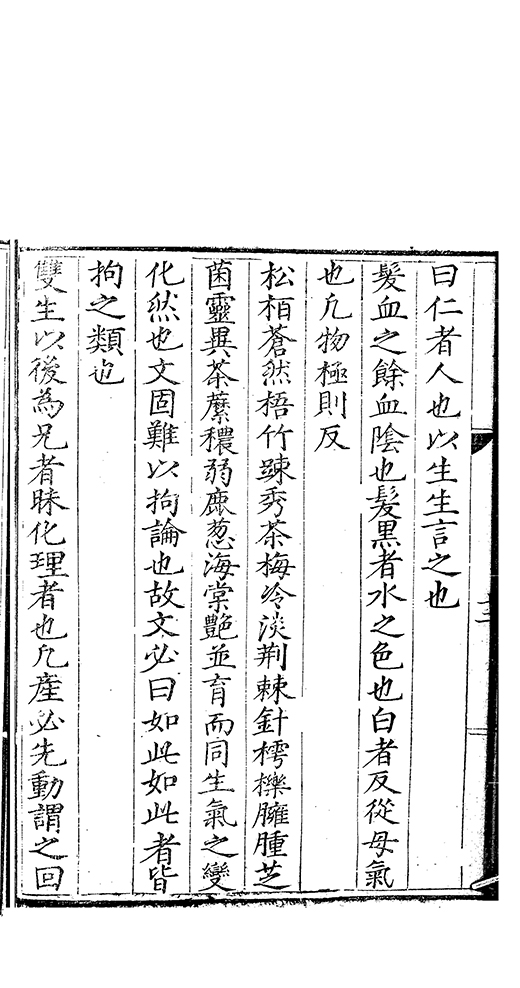 曰仁者人也以生生言之也
髮血之餘血陰也髮黒者水之色也白者反從母氣
也凢物極則反
松栢蒼然梧竹踈秀茶梅冷淡荆棘針樗櫟臃腫芝
菌靈異荼蘼穠弱鹿葱海棠艶並育而同生氣之變
化然也文固難以拘論也故文必曰如此如此者皆
拘之類也
雙生以後為兄者昧化理者也凢産必先動謂之回